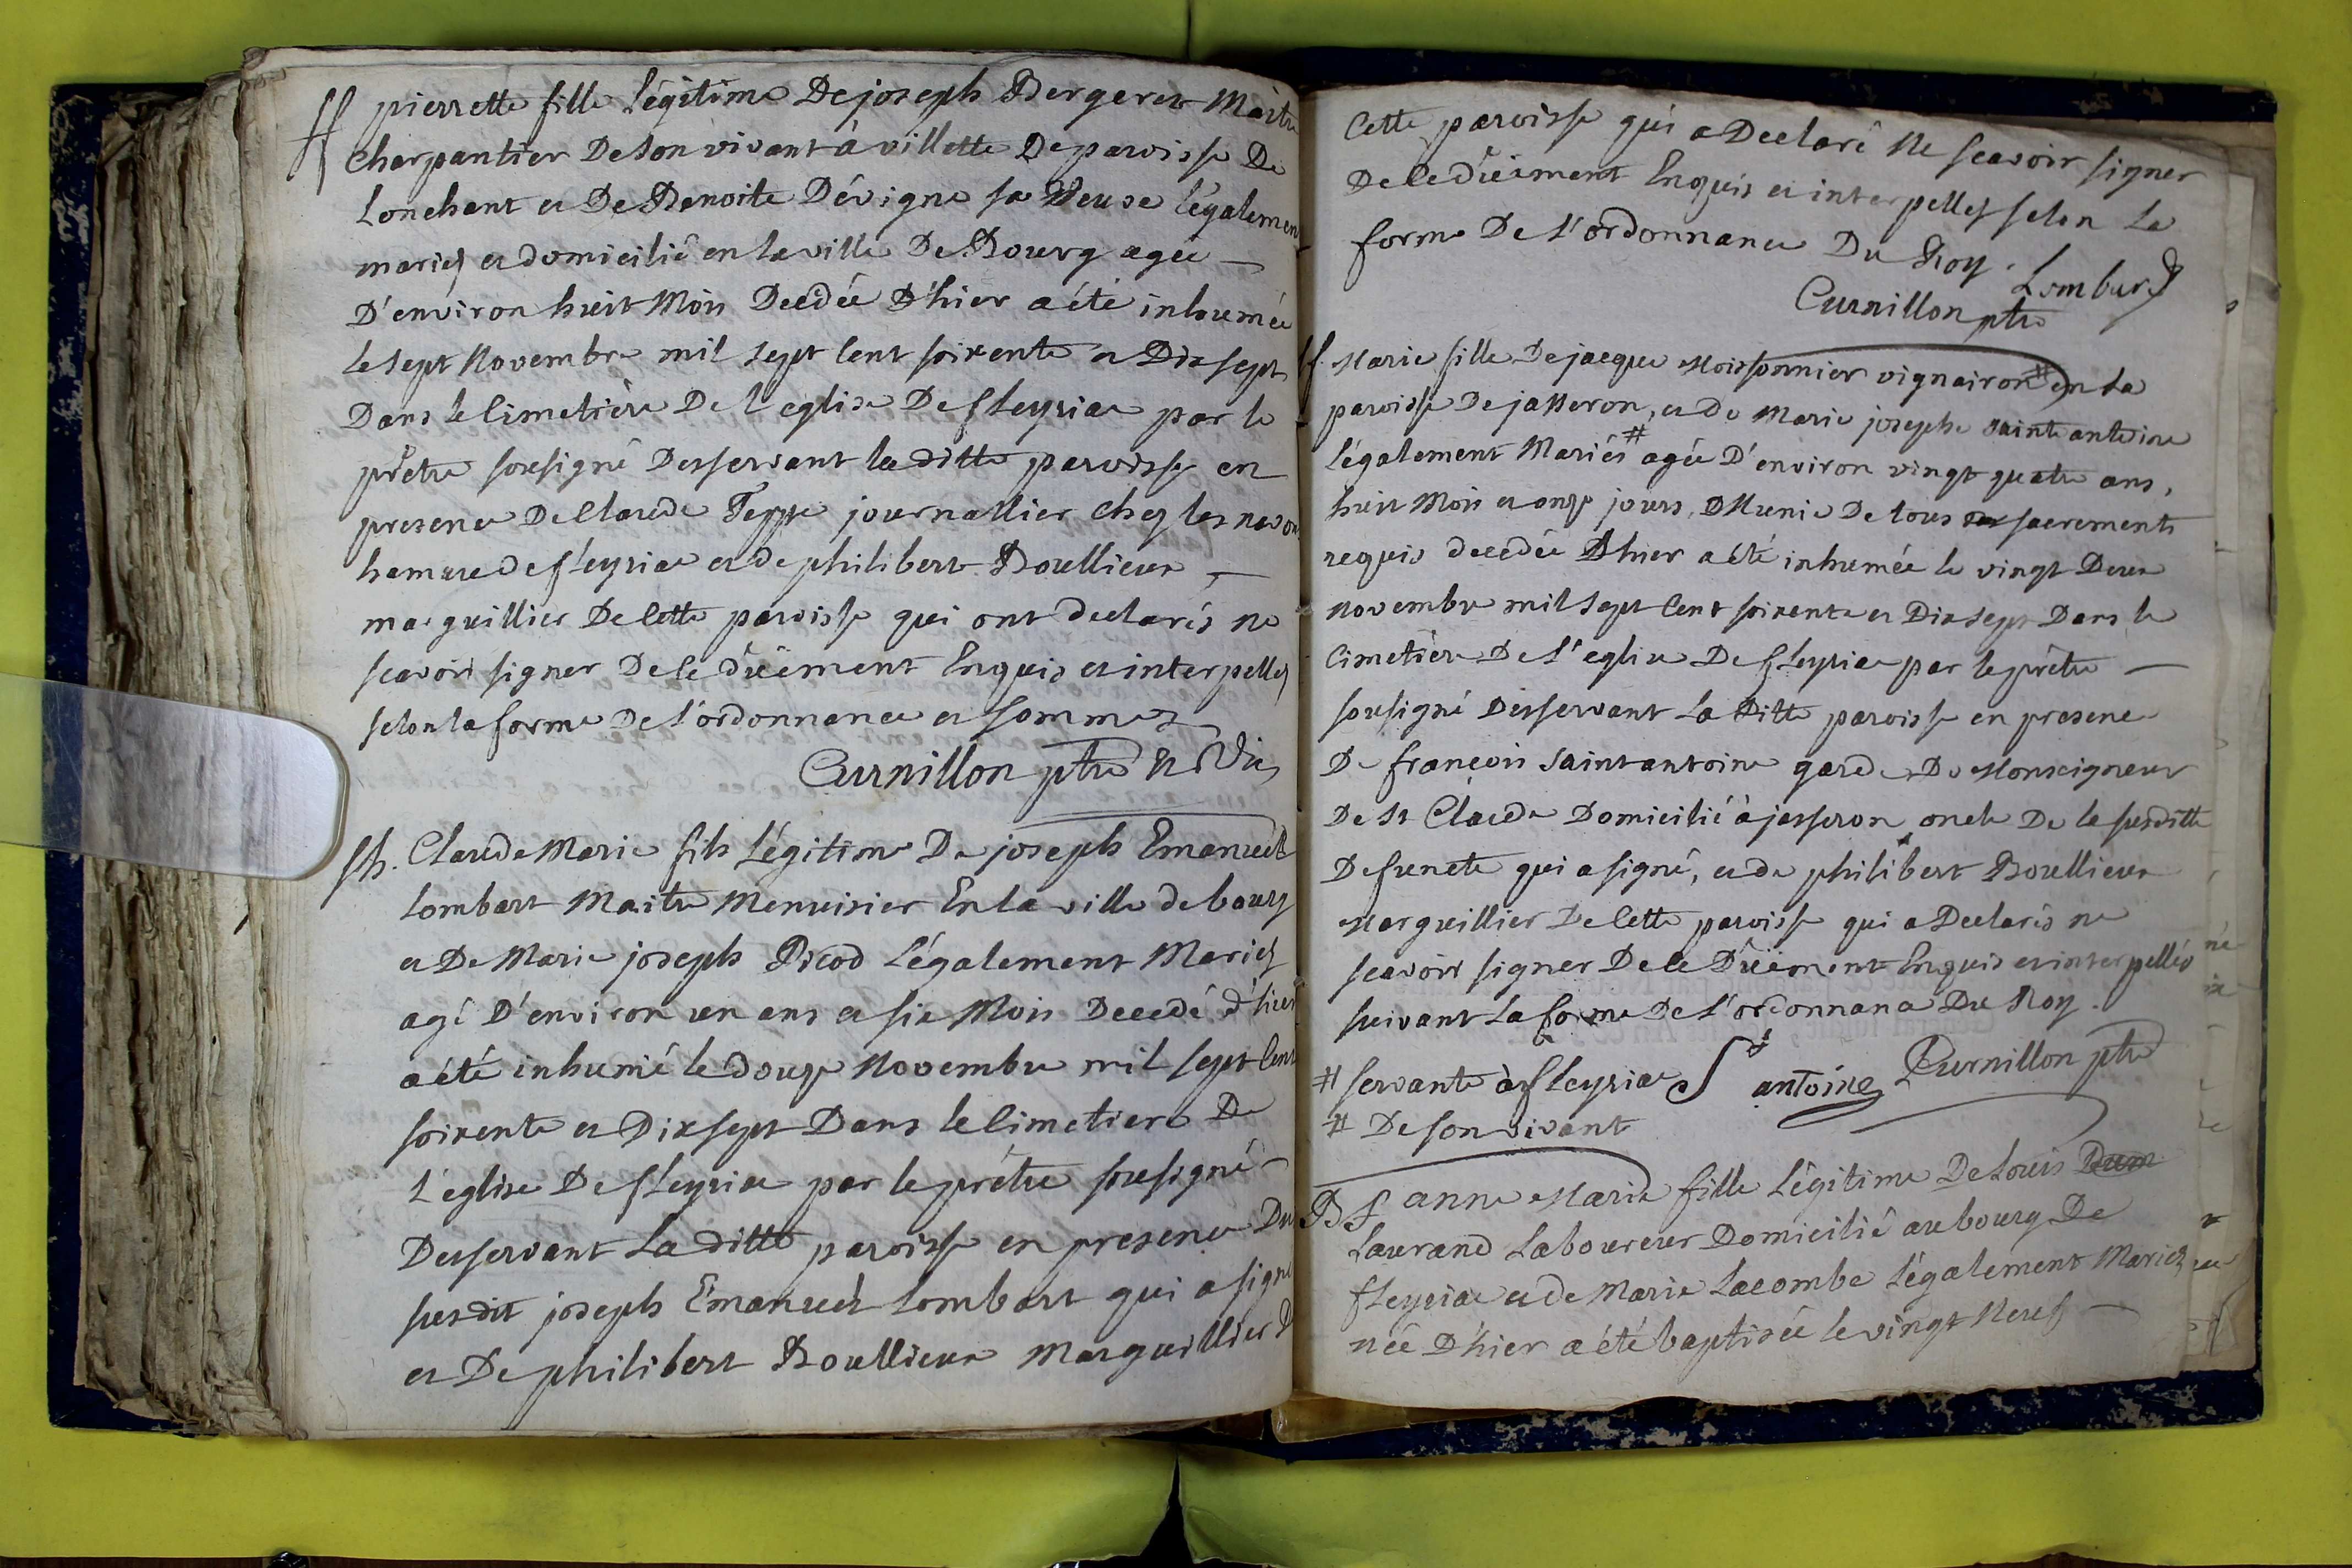 Sf pierrette fille Légitime De joseph Bergeret Maitre
Charpantier De son vivant à villette De paroisse De
Lonchant et De Benoite Dévigne sa Veuve légalement
mariés et domicilié en la ville De Bourg agée —
D'environ huit Mois Decedée D'hier a été inhumée
le sept Novembre mil sept Cent soixente et Dix sept
Dans le Cimetière De l'eglise De fleyriae par le
prêtre sousigné Desservant la ditte paroisse en
presence De Claude Teppe journallier Chez les
hameau de fleyriae et de philibert Boullieux —
marguillier De Cette paroisse qui ont declarés ne
scavoir signer De Ce düement Enquis et interpellez
selon la forme De l'ordonnance et sommez
Curnillon ptre & Vic
Sh. Claude Marie fils Légitime De joseph Emanuël
Lombart Maitre Menuisier En la ville de bourg
et De Marie joseph Picod Légalement Mariez
agé D'environ un ans et six Mois Decedé d'hier
a été inhumé le douze Novembre mil sept Cent
soixente et Dix sept Dans le Cimetiere De
L'eglise De fleyriae par le prêtre sousigné —
Desservant La ditte paroisse en presence Du
susdit joseph Emanuël Lombart qui a signé
et De philibert Boullieux Marguillier D
Cette paroisse qui a Declaré Ne scavoir signer
De Ce düement Enquis et interpellez selon la
forme De l'ordonnance Du Roy. Lombard
Curnillon ptre
Sf. Marie fille De jacque Moissonnier vignairon # en la
paroisse De jasseron, et de Marie josephe sainte antoine
légalement Mariés # agée D'environ vingt quatre ans,
huit Mois et onze jours, Munie De tous sacrements
requis decedée D'hier a été inhumée le vingt Deux
Novembre mil sept Cent soixente et Dix sept Dans le
Cimetière De l'eglise De fleyriae par le prêtre —
sousigné Desservant La Ditte paroisse en presence
De françois saint antoine garde De Monseigneur
De St Claude Domicilié à jasseron oncle De la susditte
Defuncte qui a signé, et de philibert Boullieux
Marguillier De Cette paroisse qui a Declarés ne
scavoir signer De Ce Düement Enquis et interpellés
suivant La forme De l'ordonnance Du Roy.
# servante à fleyriae St antoine Curnillon ptre
# De son vivant
Bf anne Marie fille Légitime De Louis
Laurand Laboureur Domicilié au bourg De
fleyriae et de Marie Lacombe Légalement Mariez
née D'hier a été baptisée le vingt Neuf —